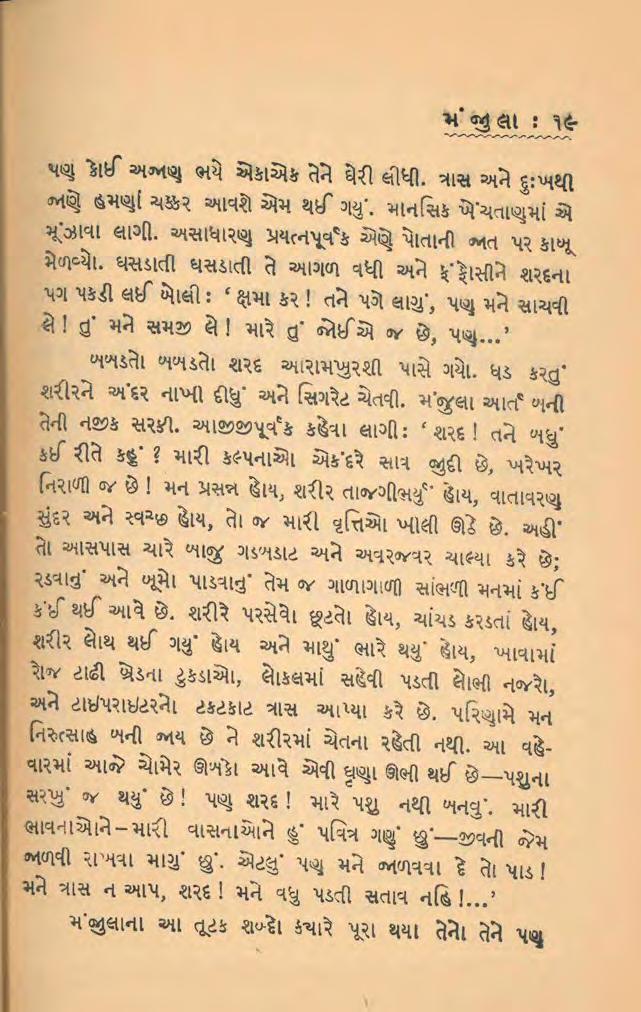 મંજુલા : ૧૯
પણ કોઈ અજાણ ભયે એકાએક તેને ઘેરી લીધી. ત્રાસ અને દુઃખથી
જાણે હમણાં ચક્કર આવશે એમ થઈ ગયું. માનસિક ખેંચતાણમાં એ
મૂંઝાવા લાગી. અસાધારણ પ્રયત્નપૂર્વક એણે પોતાની જાત પર કાબૂ
મેળવ્યો. ઘસડાતી ઘસડાતી તે આગળ વધી અને ફંફોસીને શરદના
પગ પકડી લઈ બોલી : ‘ ક્ષમા કર ! તને પગે લાગું, પણ મને સાચવી
લે ! તું મને સમજી લે ! મારે તું જોઈએ જ છે, પણ...’
બબડતો બબડતો શરદ આરામખુરશી પાસે ગયો. ધડ કરતું
શરીરને અંદર નાખી દીધું અને સિગરેટ ચેતવી. મંજુલા આર્ત બની
તેની નજીક સરકી. આજીજીપૂર્વક કહેવા લાગી : ‘ શરદ ! તને બધું
કઈ રીતે કહું ? મારી કલ્પનાઓ એકંદરે સાવ જુદી છે, ખરેખર
નિરાળી જ છે ! મન પ્રસન્ન હોય, શરીર તાજગીભર્યું હોય, વાતાવરણ
સુંદર અને સ્વચ્છ હોય, તો જ મારી વૃત્તિઓ ખીલી ઊઠે છે. અહીં
તો આસપાસ ચારે બાજુ ગડબડાટ અને અવરજવર ચાલ્યા કરે છે;
રડવાનું અને બૂમો પાડવાનું તેમ જ ગાળાગાળી સાંભળી મનમાં કંઈ
કંઈ થઈ આવે છે. શરીરે પરસેવો છૂટતો હોય, ચાંચડ કરડતાં હોય,
શરીર લોથ થઈ ગયું હોય અને માથું ભારે થયું હોય, ખાવામાં
રોજ ટાઢી બ્રેડના ટુકડાઓ, લોકલમાં સહેવી પડતી લોભી નજરો,
અને ટાઇપરાઇટરનો ટકટકાટ ત્રાસ આપ્યા કરે છે. પરિણામે મન
નિરુત્સાહ બની જાય છે ને શરીરમાં ચેતના રહેતી નથી. આ વહે-
વારમાં આજે ચોમેર ઊબકો આવે એવી ઘૃણા ઊભી થઈ છે—પશુના
સરખું જ થયું છે ! પણ શરદ ! મારે પશુ નથી બનવું. મારી
ભાવનાઓને–મારી વાસનાઓને હું પવિત્ર ગણું છું—જીવની જેમ
જાળવી રાખવા માગું છું. એટલું પણ મને જાળવવા દે તો પાડ !
મને ત્રાસ ન આપ, શરદ ! મને વધુ પડતી સતાવ નહિ !...’
મંજુલાના આ તૂટક શબ્દો ક્યારે પૂરા થયા તેનો તેને પણ